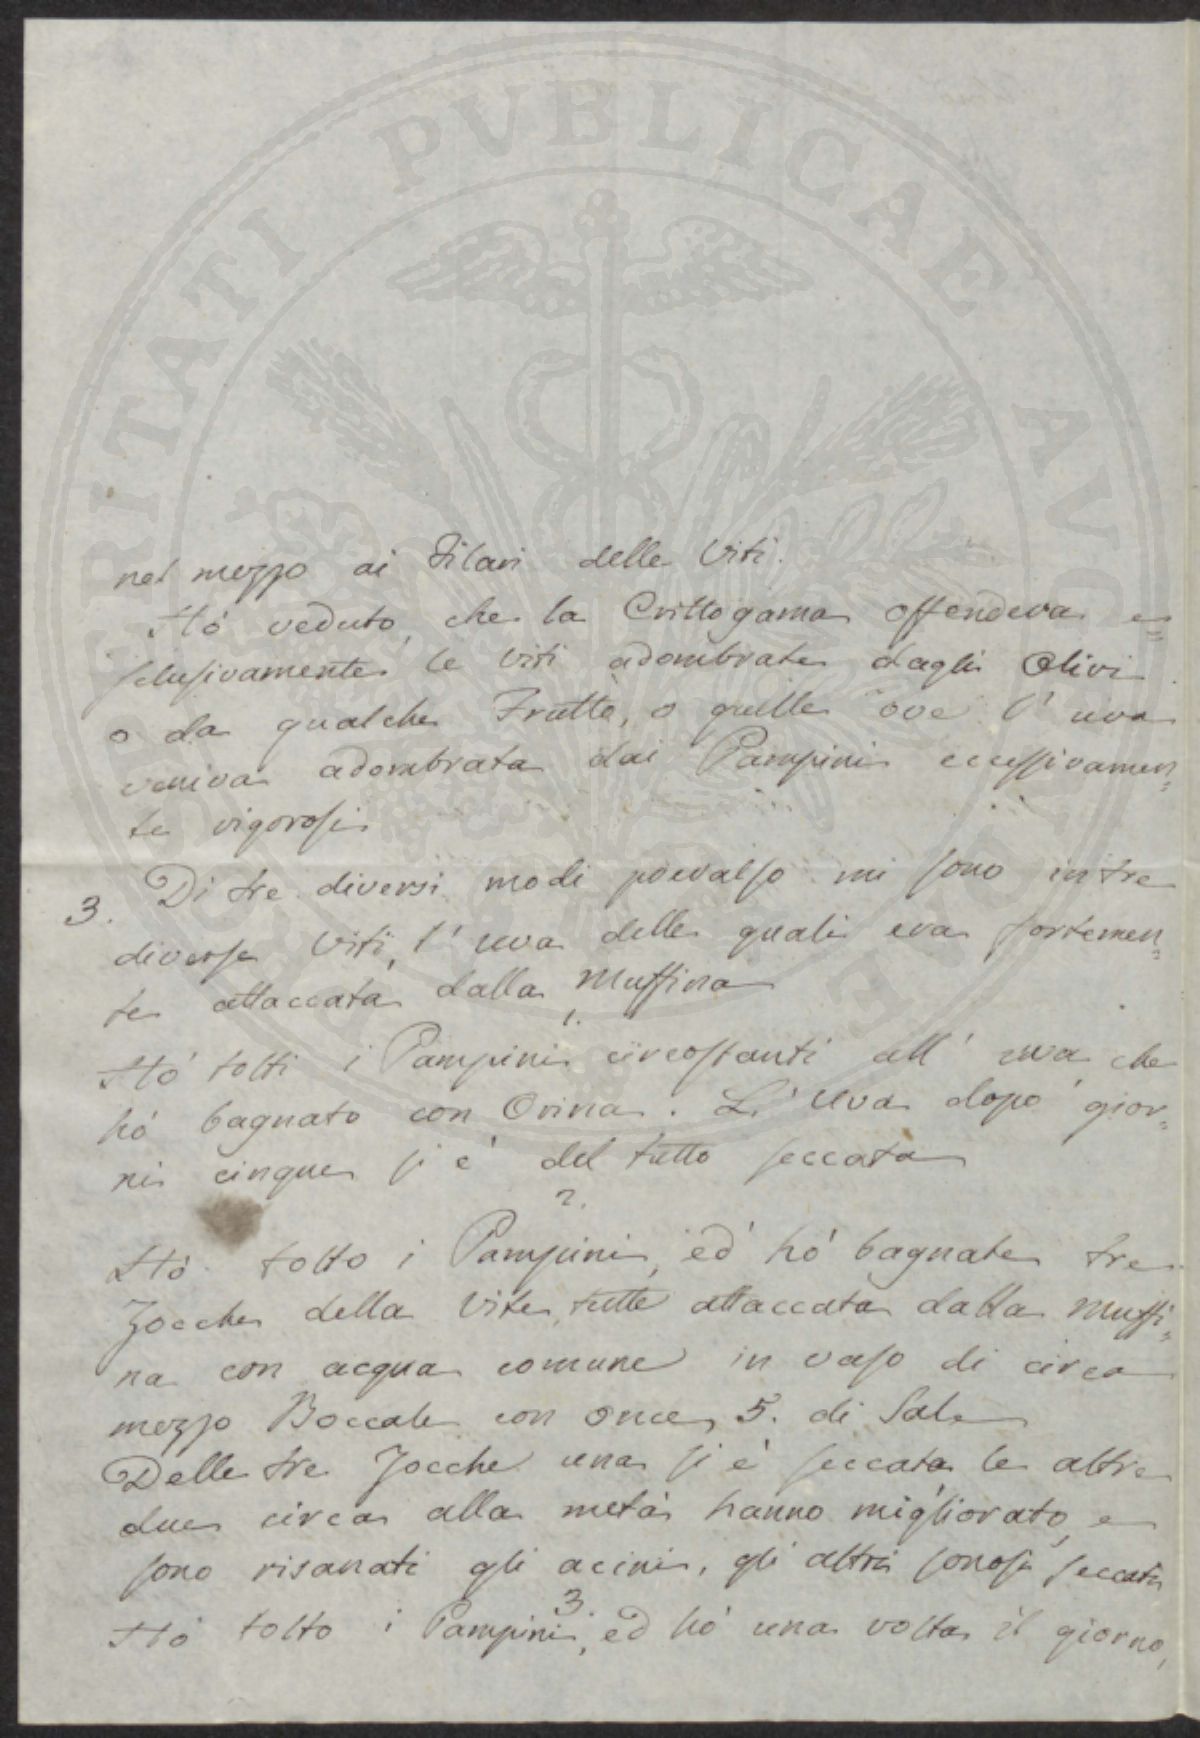 PROSPERITATI PVBLICAE AVGENDAE
nel mezzo ai Filari delle Viti.
Hó veduto, che la Crittogama offendeva e=
sclusivamente le Viti adombrate dagli Olivi
o da qualche Frutto, o quelle ove l' uva
veniva adombrata dai Pampini eccessivamen=
te vigorosi
3. Di tre diversi modi prevalso mi sono in tre
diverse Viti, l' uva delle quali era fortemen=
te attaccata dalla Muffina
1.
Hó tolti i Pampini circostanti all' uva che
hó bagnato con Orina. L' Uva dopo gior=
ni cinque si é del tutto seccata
2.
Hó tolto i Pampini, ed hó bagnate tre
Zocche della Vite, tutte attaccata dalla Muffi=
na con acqua comune in vaso di circa
mezzo Boccale con once 5. di Sale
Delle tre Zocche una si é seccata le altre
due circa alla metá hanno migliorato, e
sono risanati gli acini, gli altri sonosi seccati
3.
Hó tolto i Pampini, ed hó una volta il giorno,